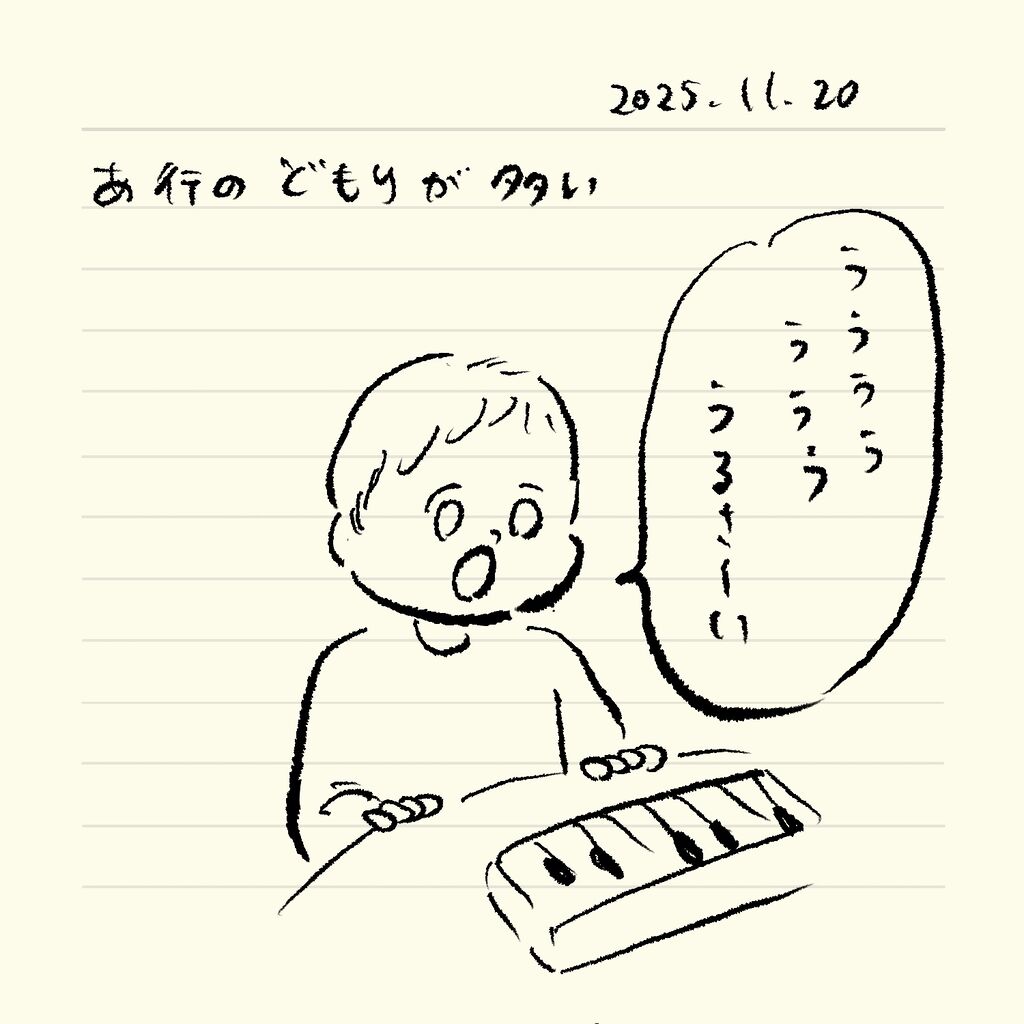 2025.11.20
あ行のどもりが多い
うううう
ううう
うるさーい